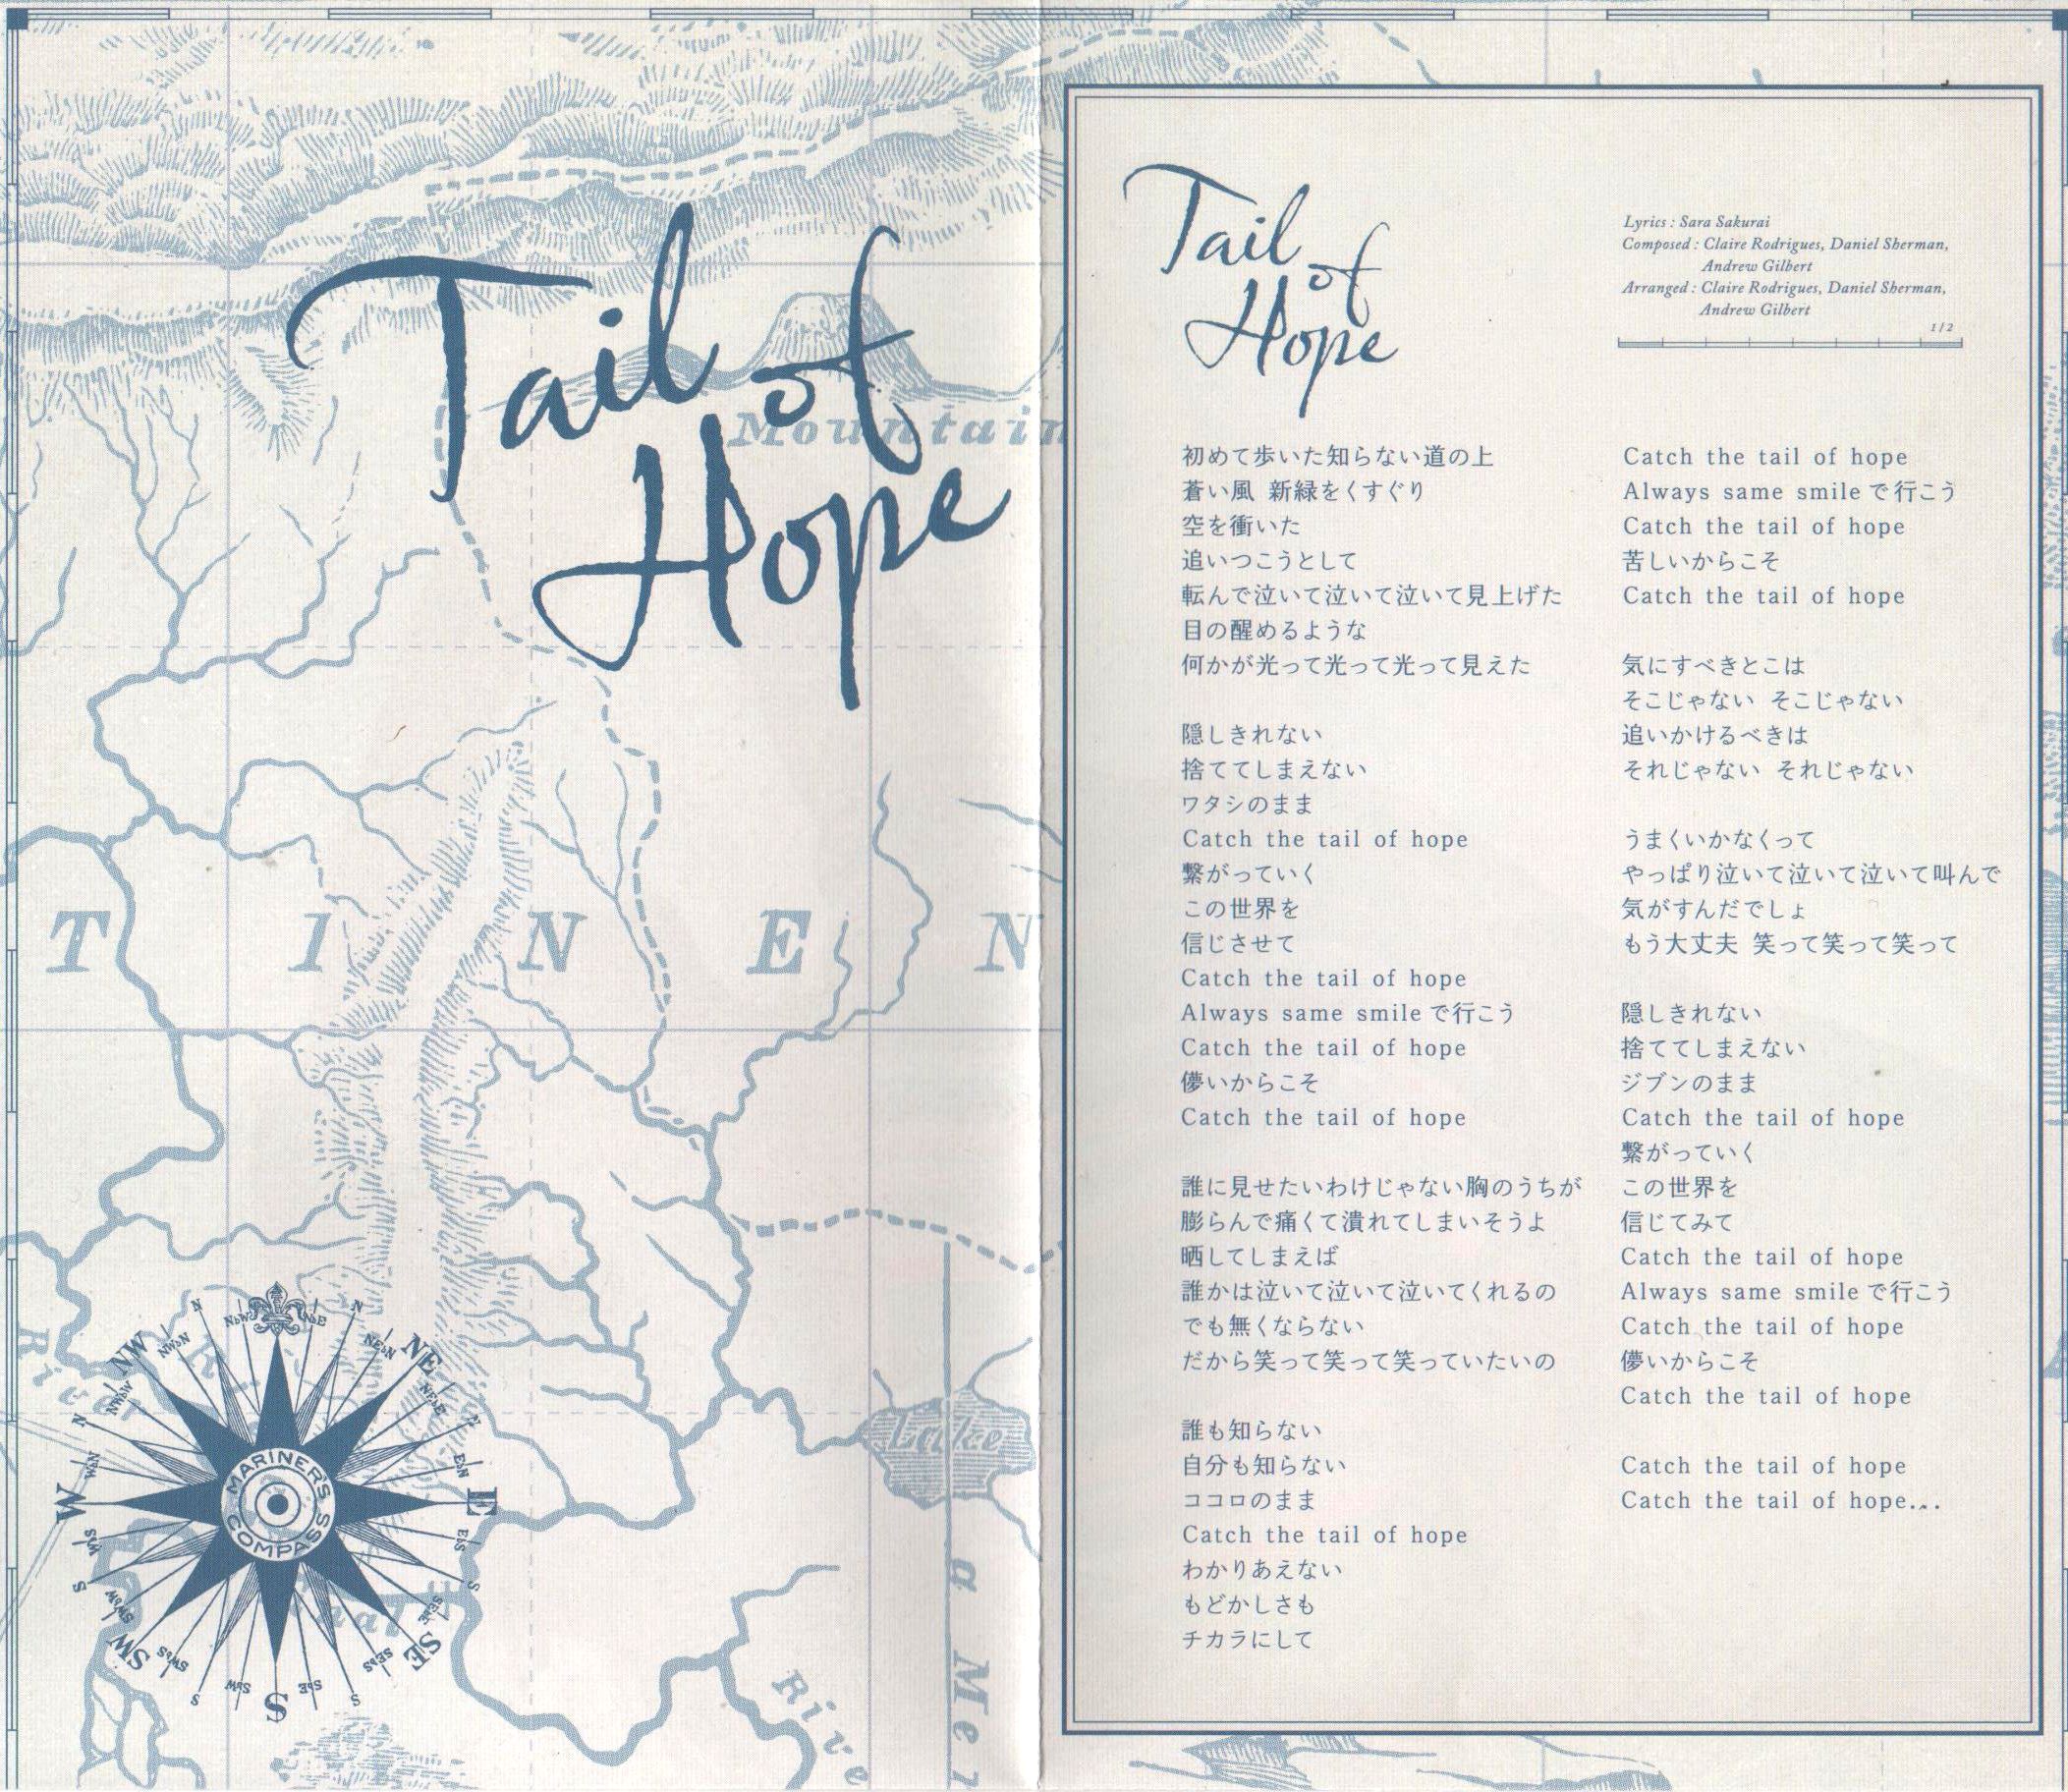 Tail of
Hope
Mountain
T I N E N
River
Lake
River
MARINER'S
COMPASS
NW
NE
W
E
SW
SE
S
Tail
of
Hope
Lyrics : Sara Sakurai
Composed : Claire Rodrigues, Daniel Sherman,
Andrew Gilbert
Arranged : Claire Rodrigues, Daniel Sherman,
Andrew Gilbert
1/2
初めて歩いた知らない道の上
蒼い風 新緑をくすぐり
空を衝いた
追いつこうとして
転んで泣いて泣いて泣いて見上げた
目の醒めるような
何かが光って光って光って見えた
隠しきれない
捨ててしまえない
ワタシのまま
Catch the tail of hope
繋がっていく
この世界を
信じさせて
Catch the tail of hope
Always same smileで行こう
Catch the tail of hope
儚いからこそ
Catch the tail of hope
誰に見せたいわけじゃない胸のうちが
膨らんで痛くて潰れてしまいそうよ
晒してしまえば
誰かは泣いて泣いて泣いてくれるの
でも無くならない
だから笑って笑って笑っていたいの
誰も知らない
自分も知らない
ココロのまま
Catch the tail of hope
わかりあえない
もどかしさも
チカラにして
Catch the tail of hope
Always same smileで行こう
Catch the tail of hope
苦しいからこそ
Catch the tail of hope
気にすべきとこは
そこじゃない そこじゃない
追いかけるべきは
それじゃない それじゃない
うまくいかなくって
やっぱり泣いて泣いて泣いて叫んで
気がすんだでしょ
もう大丈夫 笑って笑って笑って
隠しきれない
捨ててしまえない
ジブンのまま
Catch the tail of hope
繋がっていく
この世界を
信じてみて
Catch the tail of hope
Always same smileで行こう
Catch the tail of hope
儚いからこそ
Catch the tail of hope
Catch the tail of hope
Catch the tail of hope...